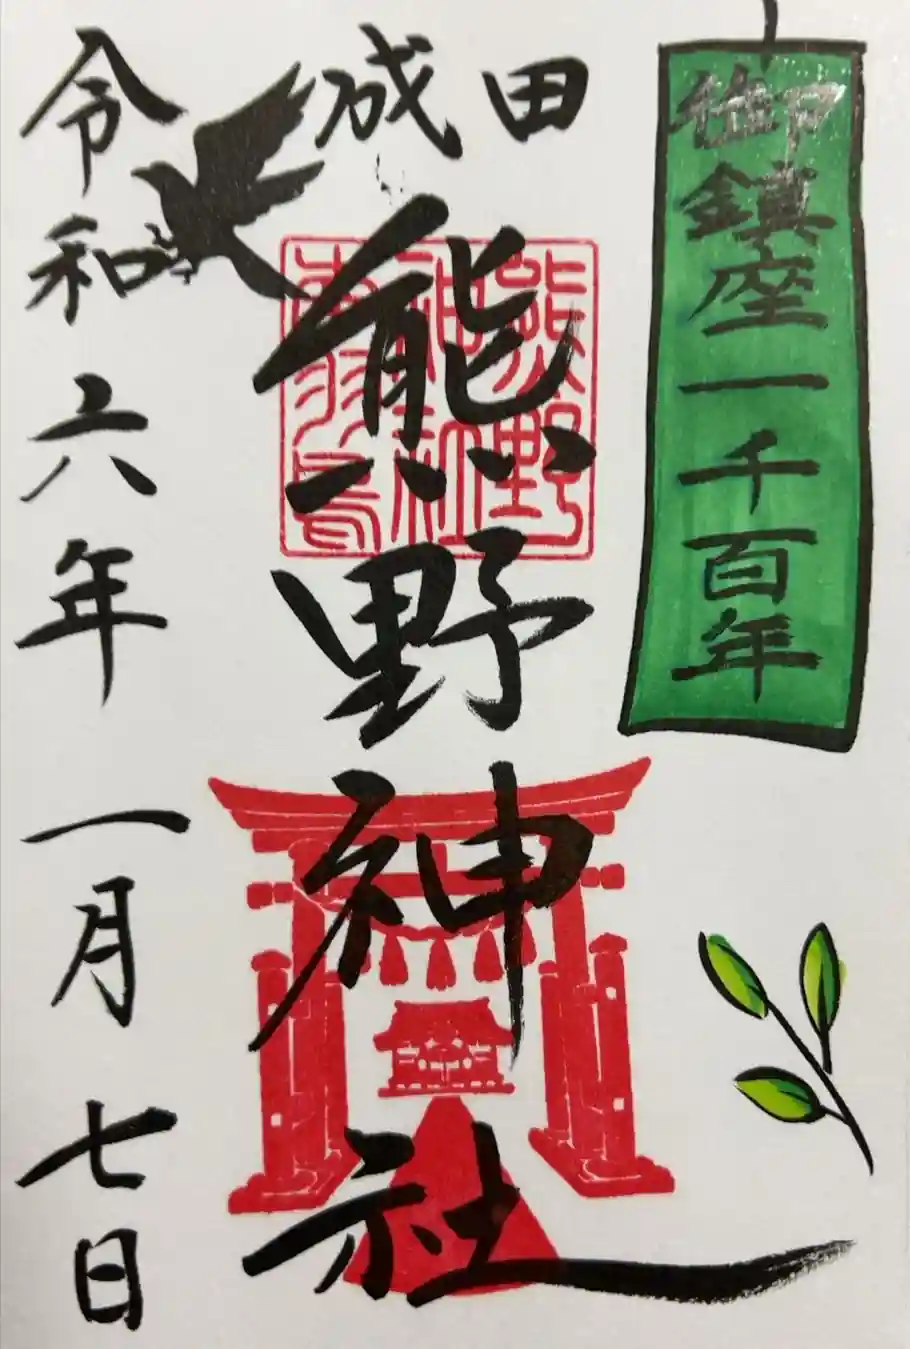 御鎮座一千百年
成田
熊野神社
熊野
神社
令和六年一月七日